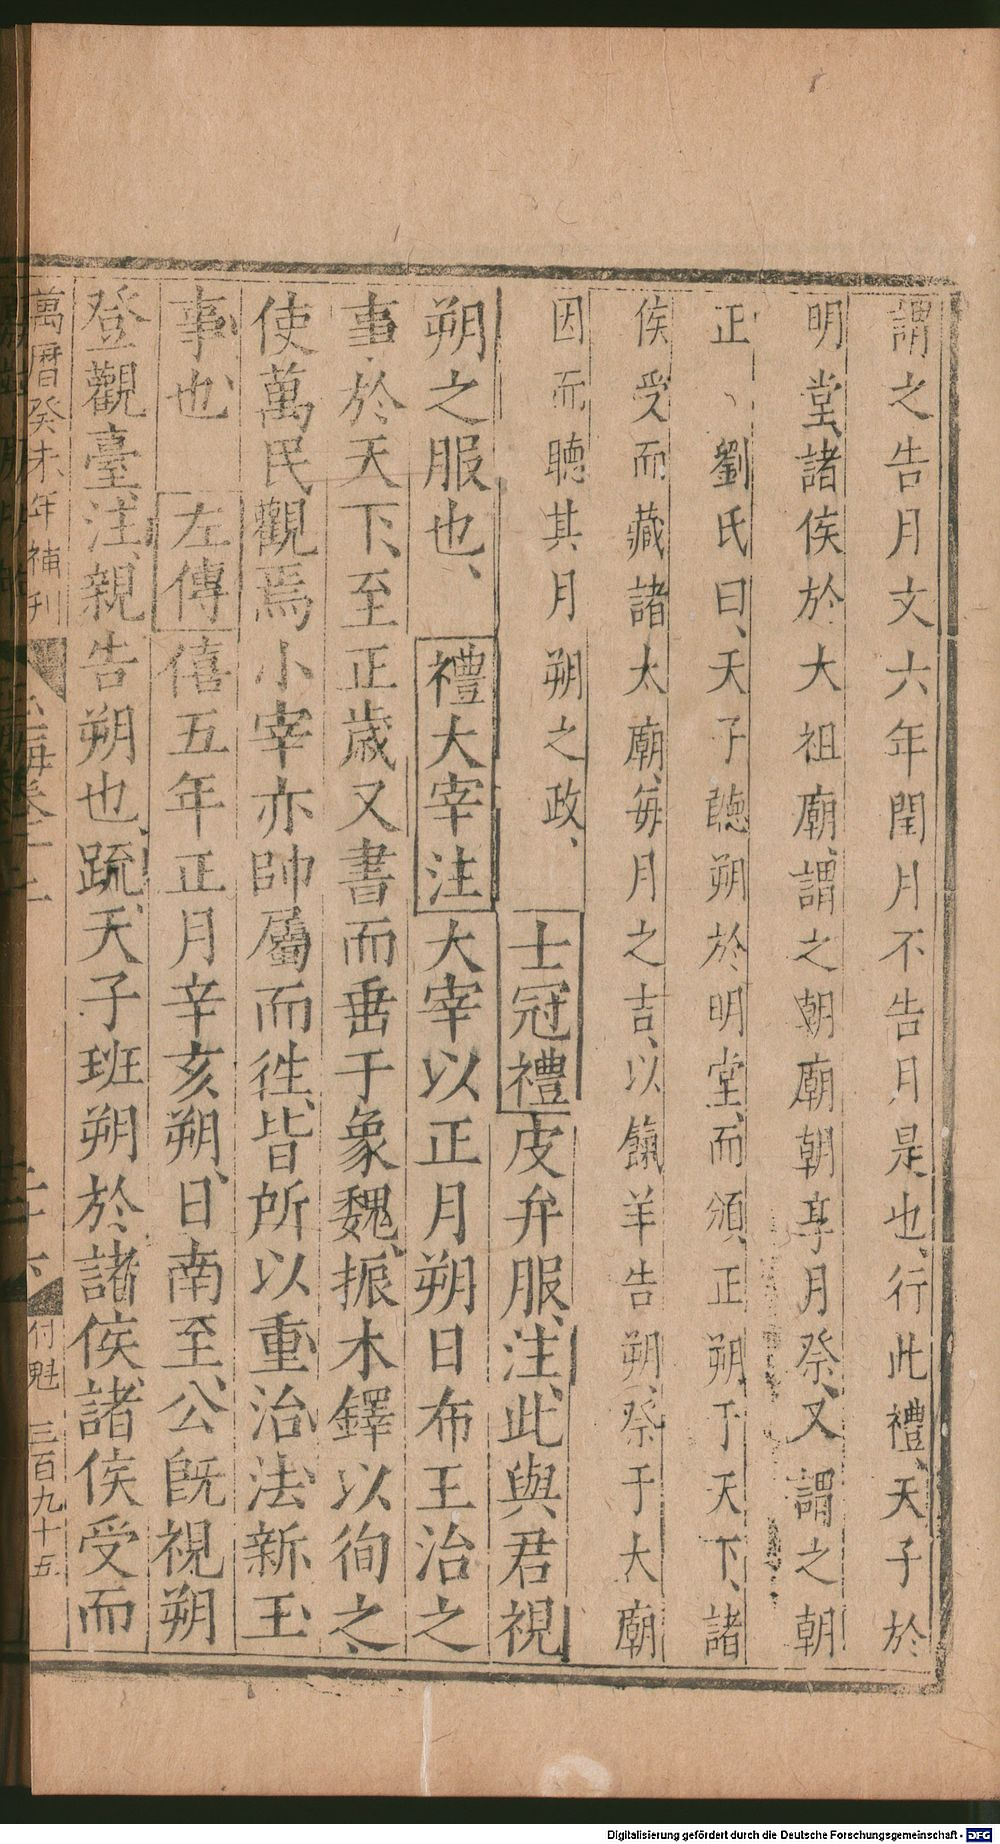 謂之告月文六年閏月不告月是也、行此禮、天子於
明堂、諸侯於大祖廟、謂之朝廟朝享月祭、又謂之朝
正、劉氏曰、天子聽朔於明堂、而頒正朔于天下、諸
侯受而藏諸太廟、每月之吉、以餼羊告朔、祭于大廟
因而聽其月朔之政、 士冠禮皮弁服、注、此與君視
朔之服也、 禮大宰注大宰以正月朔日布王治之
事於天下、至正歲又書而垂于象魏、振木鐸以徇之、
使萬民觀焉小宰亦帥屬而往、皆所以重治法新王
事也、 左傳僖五年正月辛亥朔、日南至、公旣視朔
登觀臺、注、親告朔也、疏、天子班朔於諸侯、諸侯受而
萬曆癸未年補刊 付魁 三百九十五
Digitalisierung gefördert durch die Deutsche Forschungsgemeinschaft - DFG